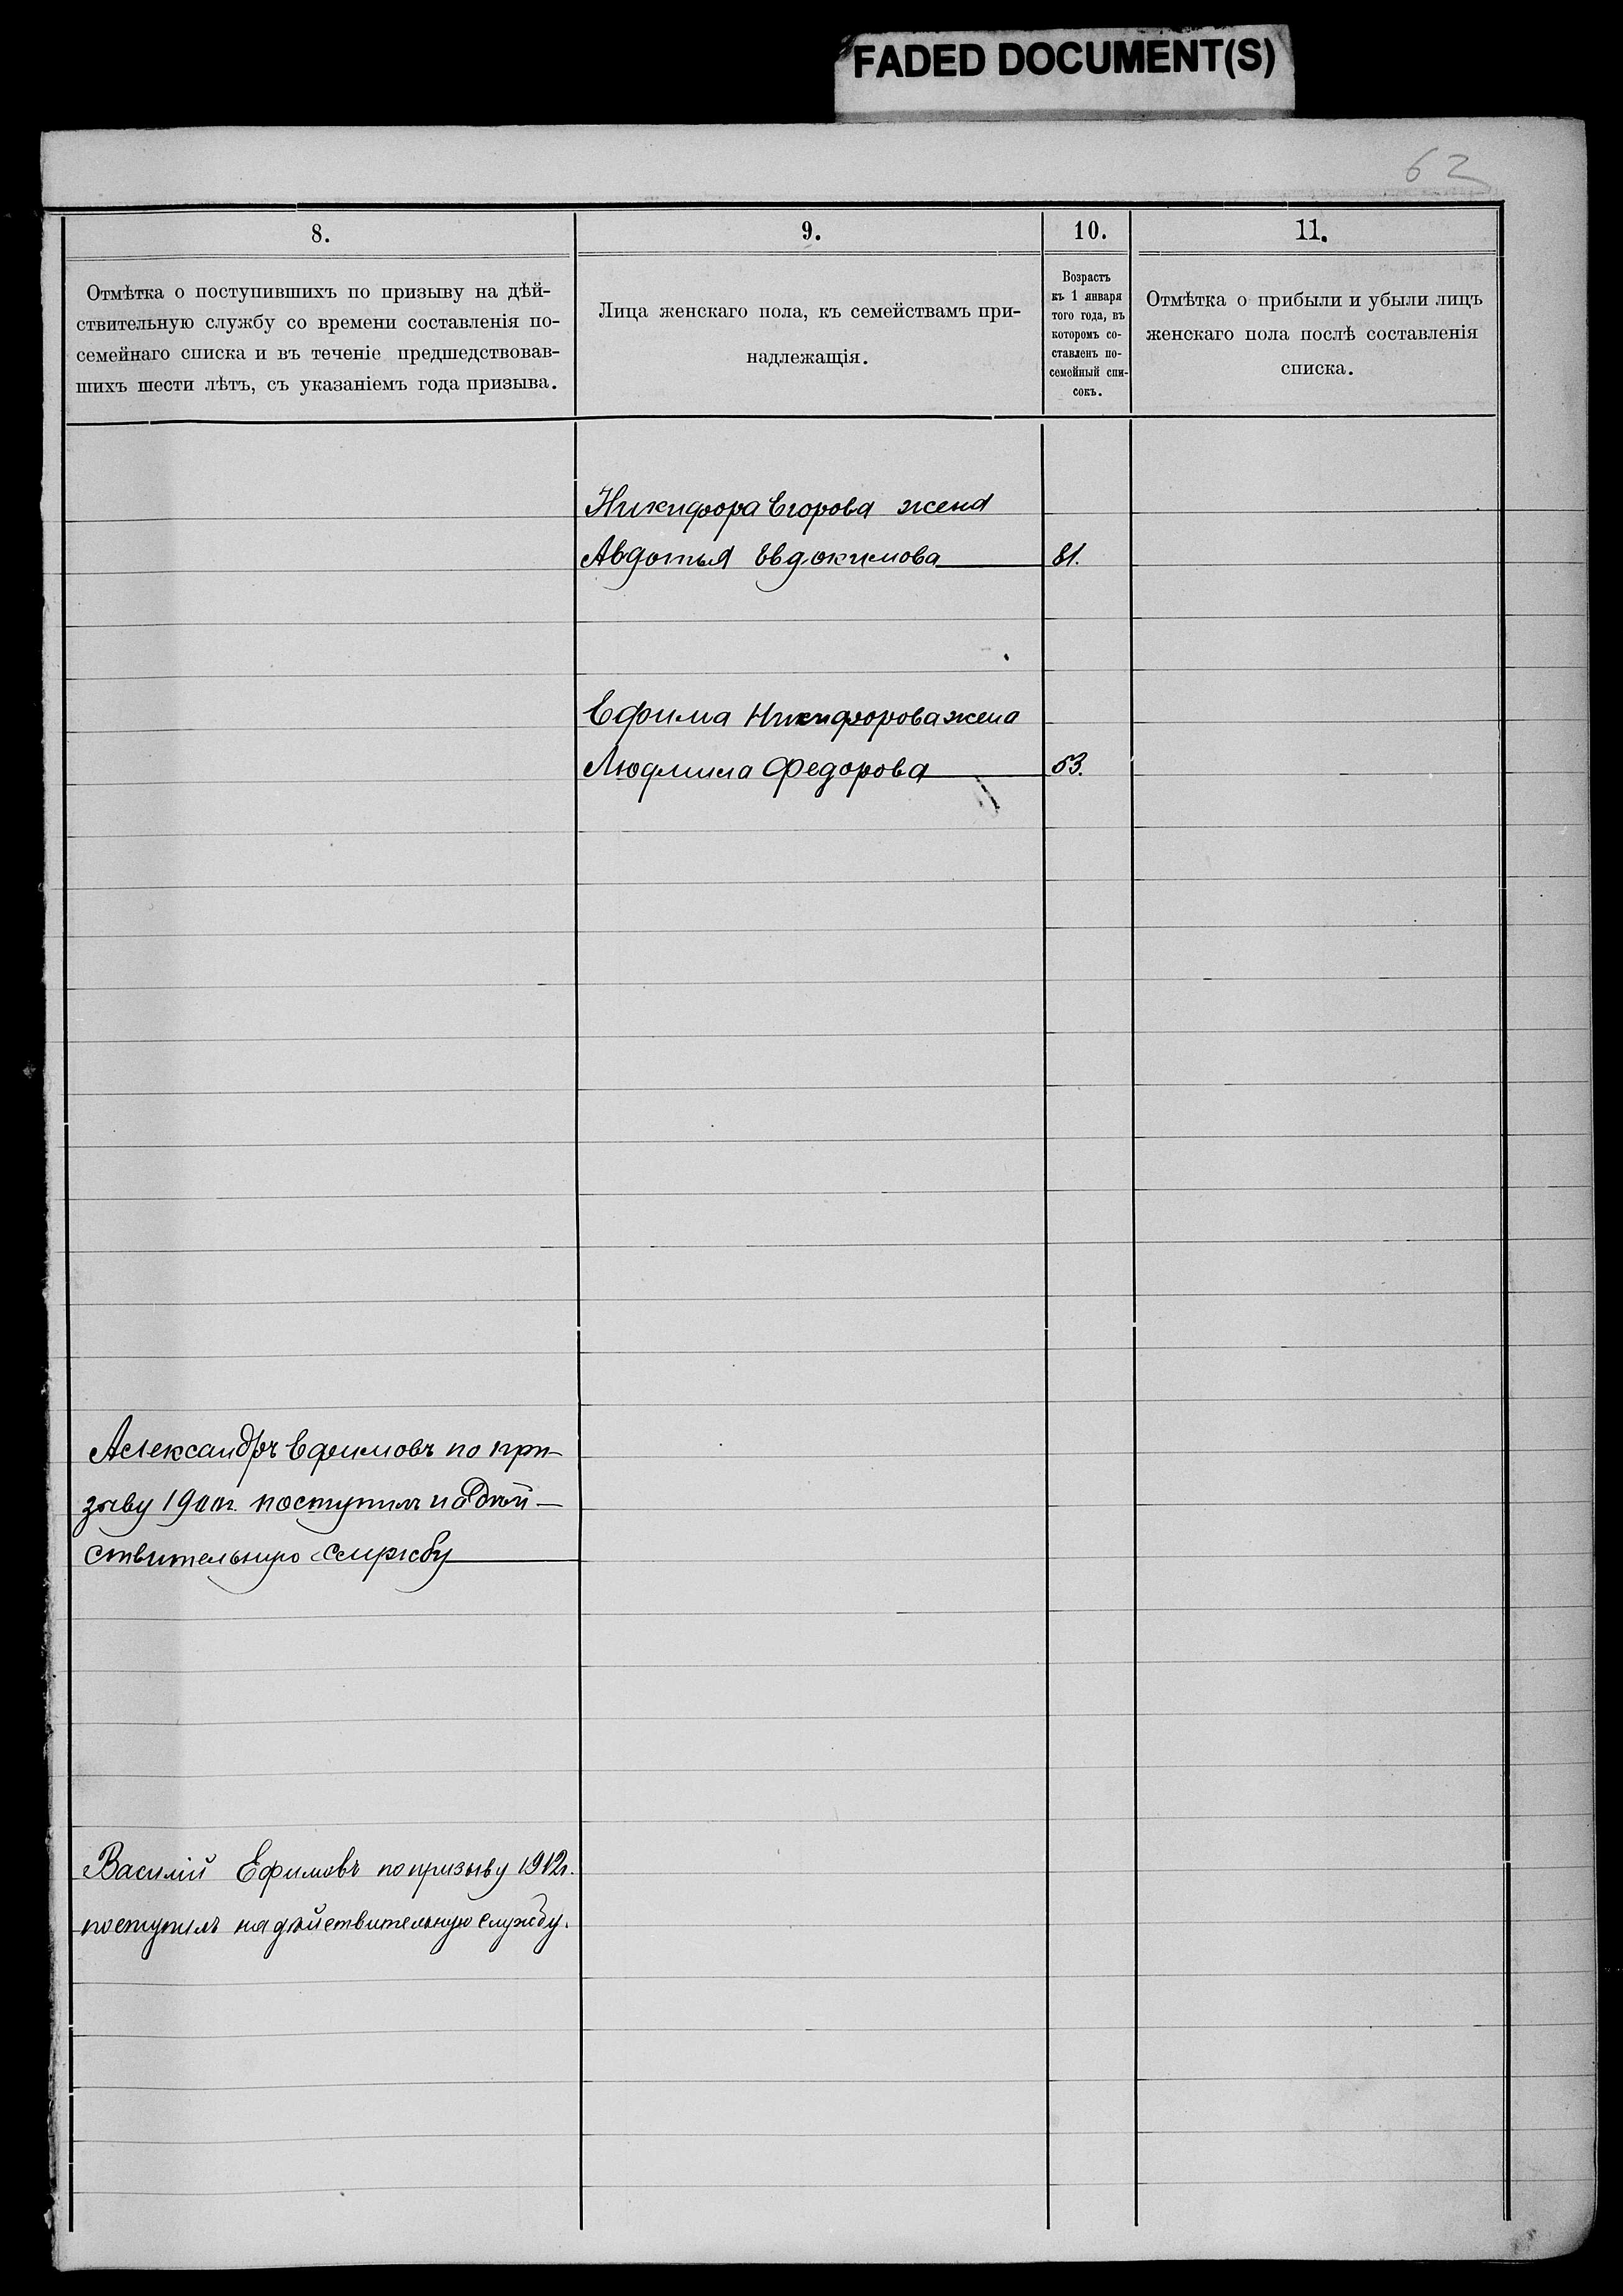 FADED DOCUMENT(S)
62
8.
Отмѣтка о поступившихъ по призыву на дѣй-
ствительную службу со времени составленія по-
семейнаго списка и въ теченіе предшедствовав-
шихъ шести лѣтъ, съ указаніемъ года призыва.
9.
Лица женскаго пола, къ семействамъ при-
надлежащія.
10.
Возрастъ
къ 1 января
того года, въ
которомъ со-
ставленъ по-
семейный спи-
сокъ.
11.
Отмѣтка о прибыли и убыли лицъ
женскаго пола послѣ составленія
списка.
Никифора Егорова жена
Авдотья Евдокимова 81.
Ефима Никифорова жена
Людмила Федорова 53.
Александръ Ефимовъ по при-
зыву г. поступилъ на дѣй-
ствительную службу
Василій Ефимовъ по призыву 1912г.
поступилъ на дѣйствительную службу.